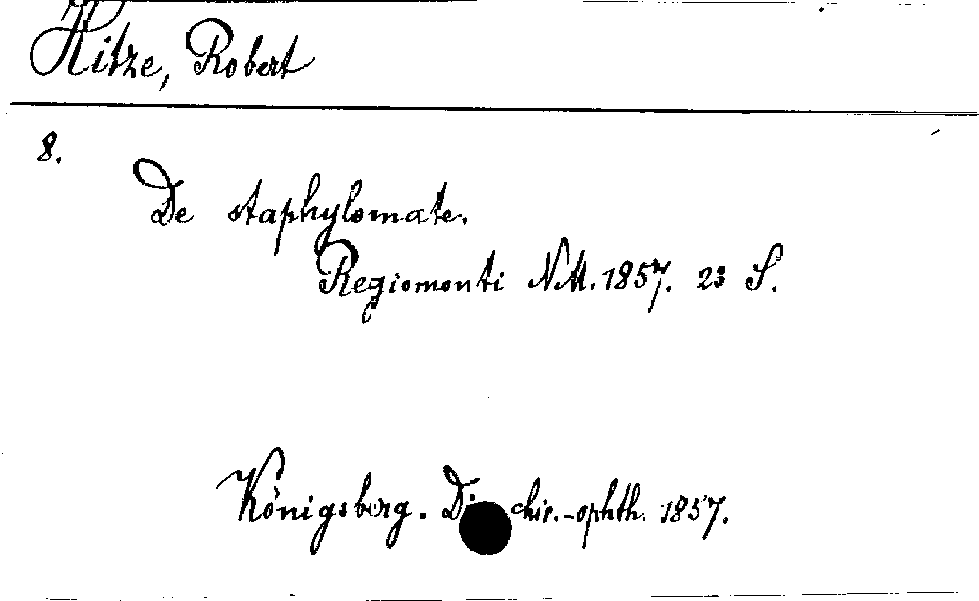 Hitze, Robert
8.
De staphylomate.
Regiomonti 1857. 23 S.
Königsberg. chir.-ophth. 1857.